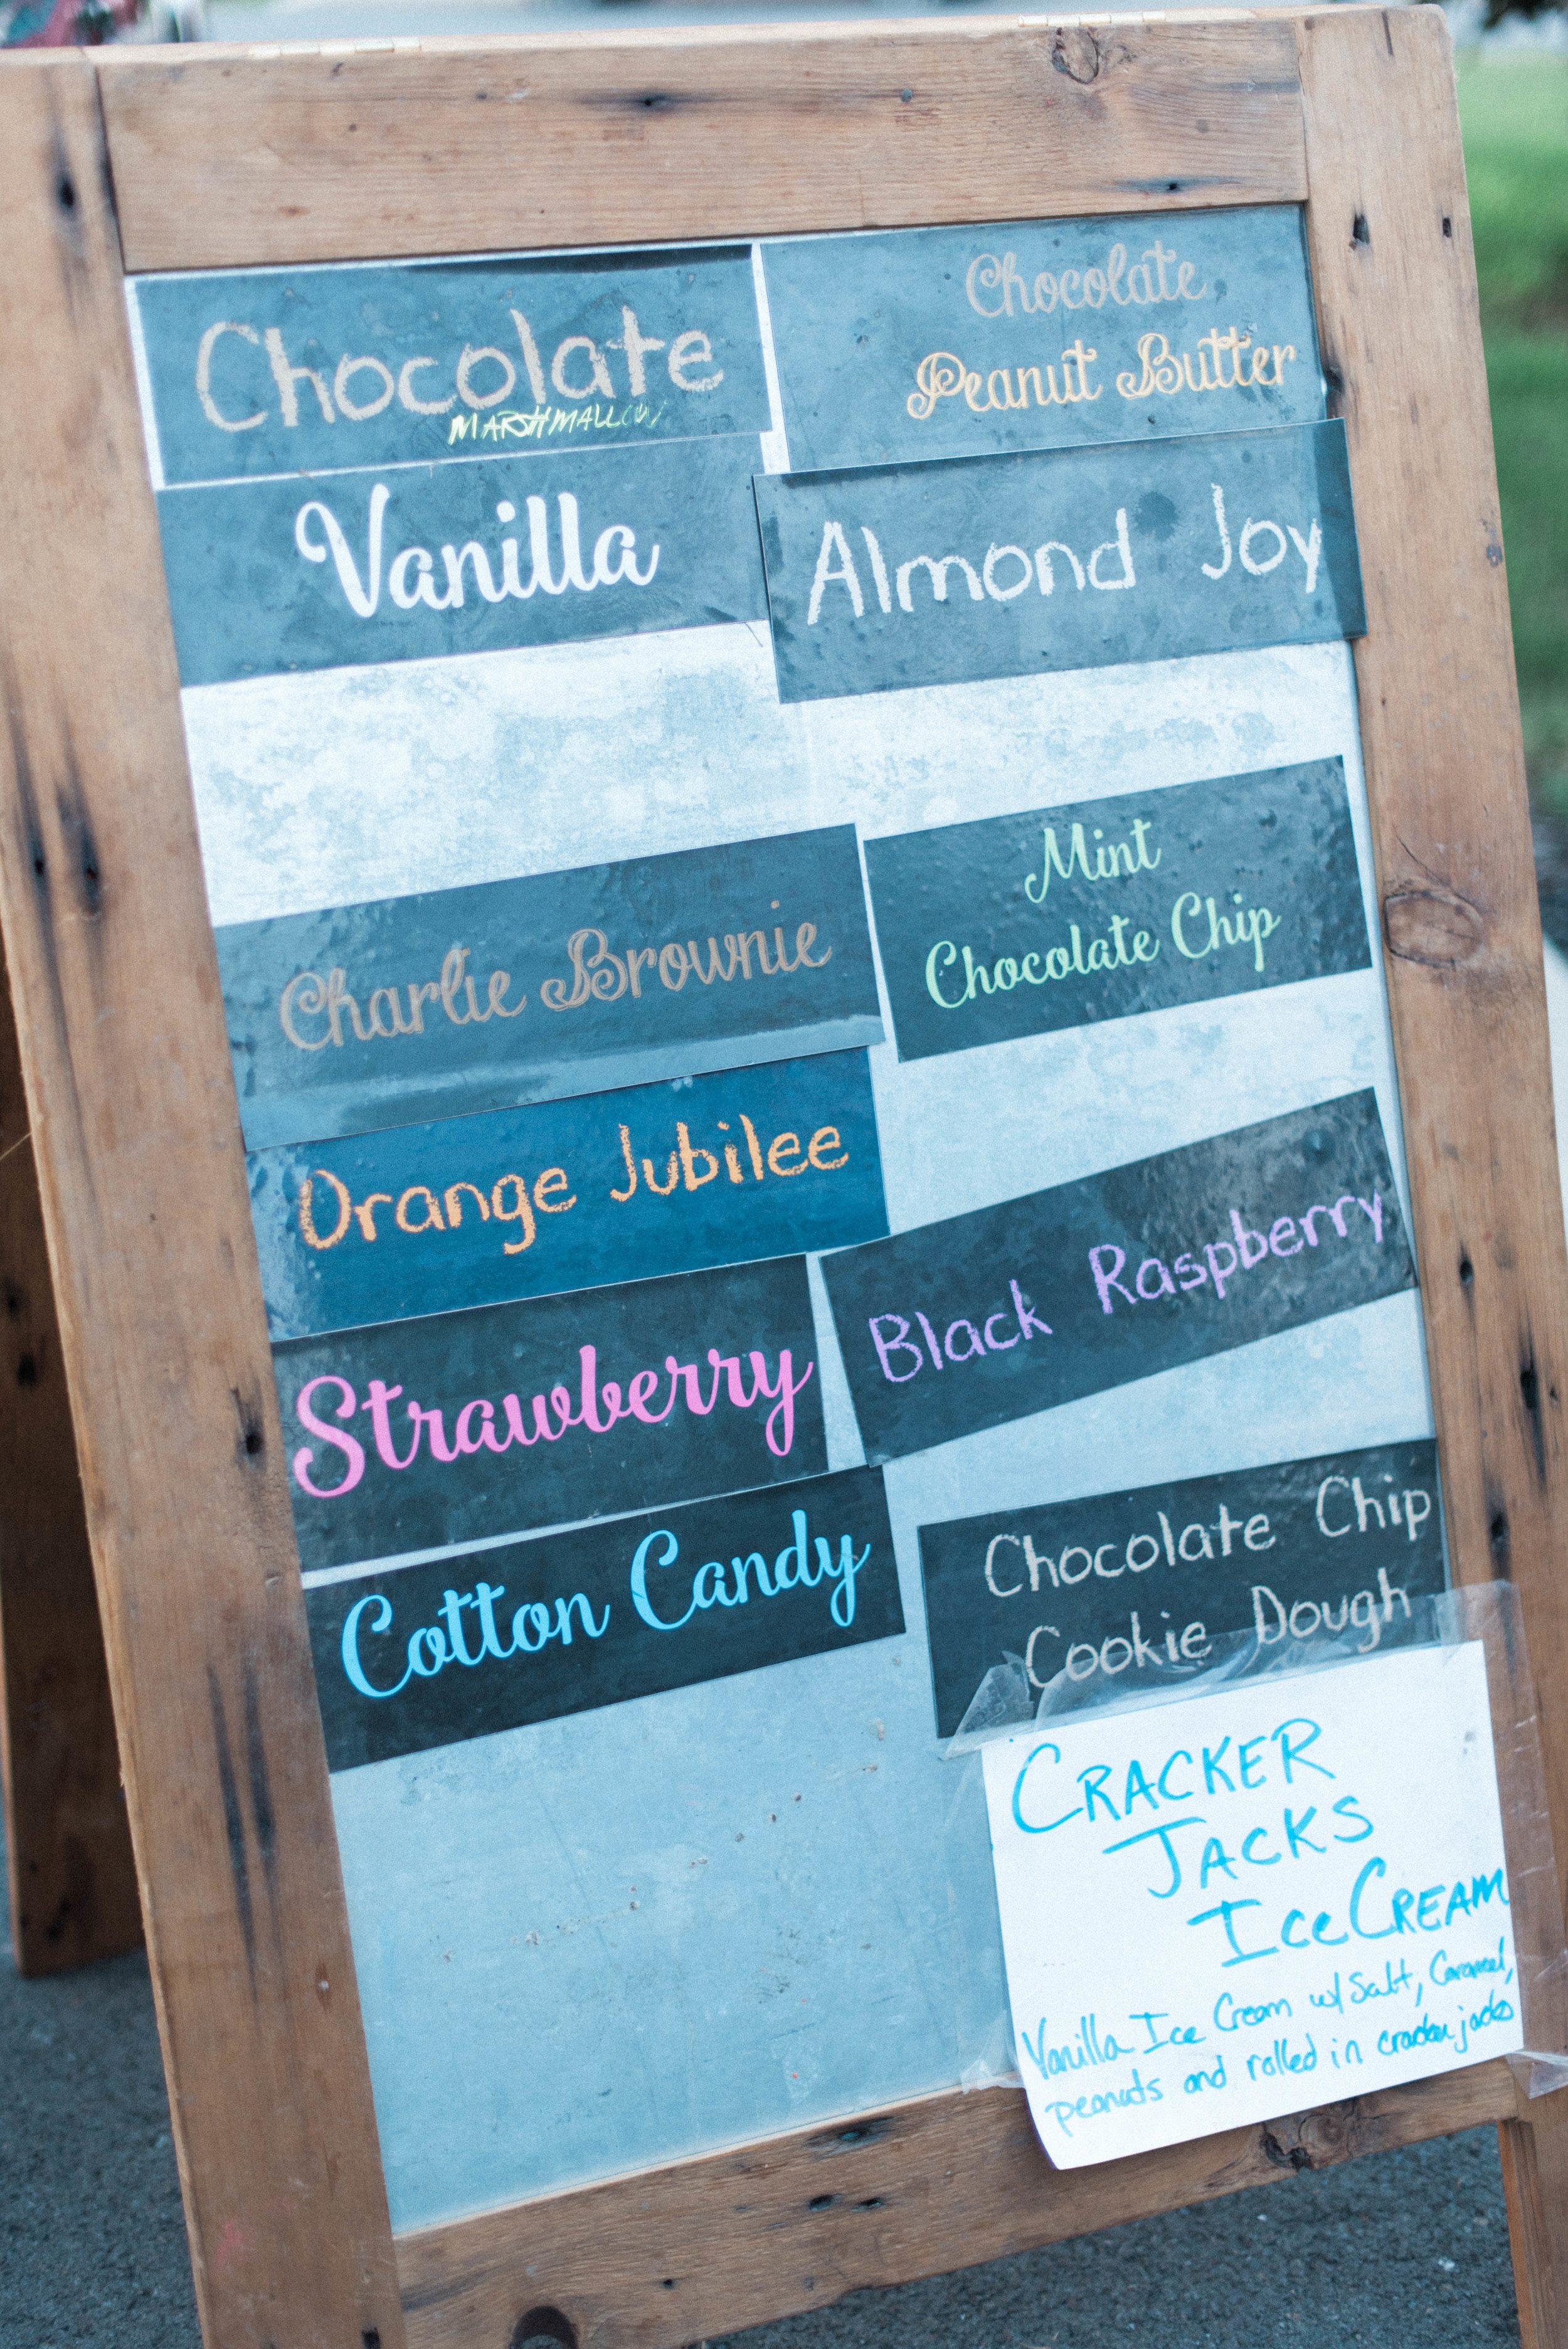 Chocolate
MARSHMALLOW
Chocolate
Peanut Butter
Vanilla
Almond Joy
Charlie Brownie
Mint
Chocolate Chip
Orange Jubilee
Black Raspberry
Strawberry
Cotton Candy
Chocolate Chip
Cookie Dough
CRACKER
JACKS
Ice CREAM
Vanilla Ice Cream w/ Salt, Caramel,
peanuts and rolled in cracker jacks